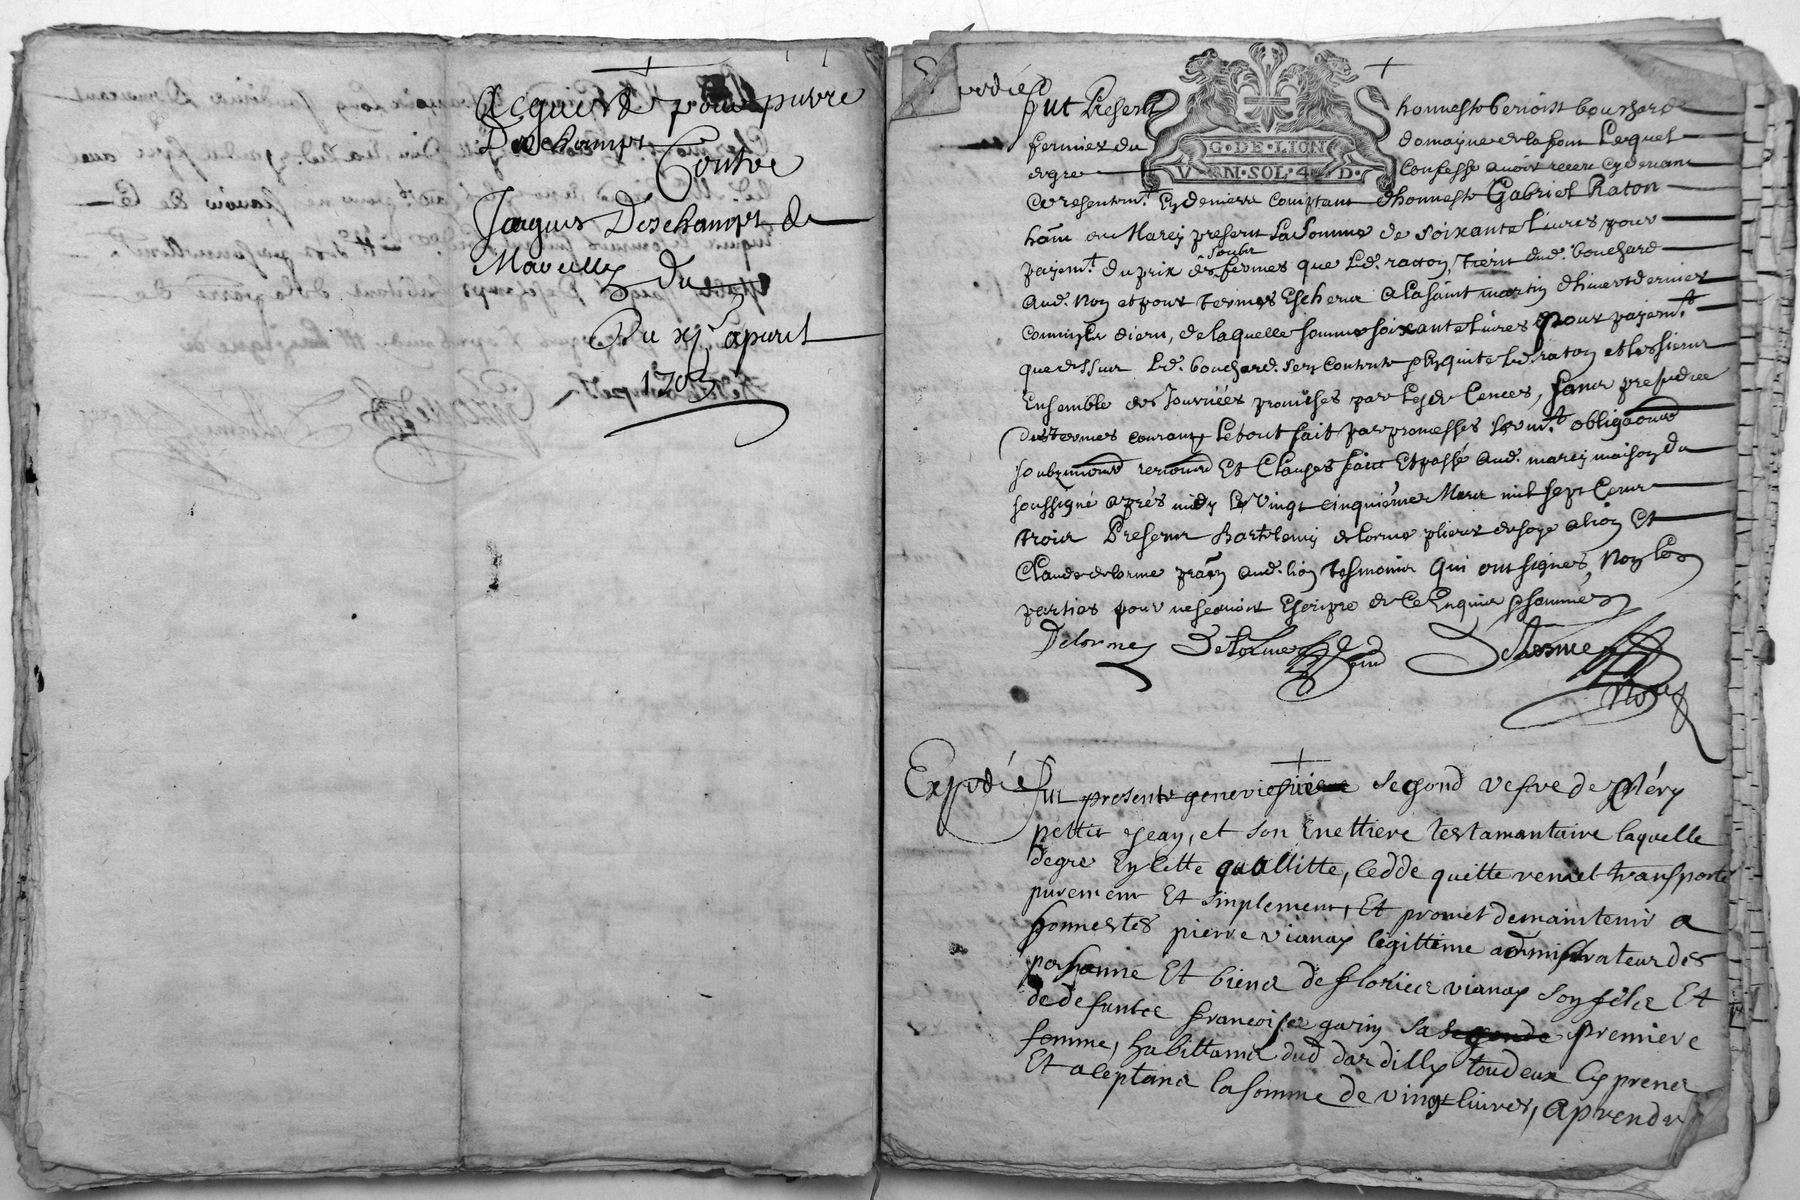 Acquist pour pierre
Deschamps
Contre
Jacques Deschamps de
Marcilly
Du
Du xj apvril
1703
Expedié
fut Present honneste benoist bouchard
fermier du domayne de la font Lequel
de gre confesse avoir receu cy devant
G·DE·LION
V·EN·SOL·4·D·
Presentemt. Et dernier comptant d'honneste Gabriel Raton
hãnt au Marcy present La Somme de Soixante Livres pour
payemt. du prix des soubz fermes que Ld. ratton, Tient dud. bouchard
aud. Noy et pour termes Escheux a La saint martin d'hiver dernier
de laquelle somme soixante Livres pour payemt.
que dessur Ld. bouchard. sen contente Et quitte Ld. raton et les siens
Ensemble des Journées promises par
des termes courant Le tout fait par promesses sermt. obligaõns
soubzmiõns renonõn Et Clauses faict Et passé aud. marcy maison du
soussigné aprés midy Le Vingt cinquiéme Mars mil sept Cent
trois Presens Bartelemy delorme plieur de soye a lion Et
Claude delorme aud. lion tesmoins Qui ont signés, Non les
parties pour ne scavoir Escripre de ce Enquis Et sommés
Delorme Delorme Delorme
Nore
Expedié
fut presente geneviefve segond vefve de Méry
pettit Jean, et son heritiere testamantaire laquelle
degre En cette quallitte, cedde quitte remet transporte
purement Et simplement, Et promet de maintenir a
honnestes pierre vianay legittime administrateur des
personne Et biens de florie vianay son fils Et
de defuntee francoise garin sa segonde premiere
femme, habittans dud dardilly tous deux Cy presens
Et aceptans la somme de vingt livres, a prendre